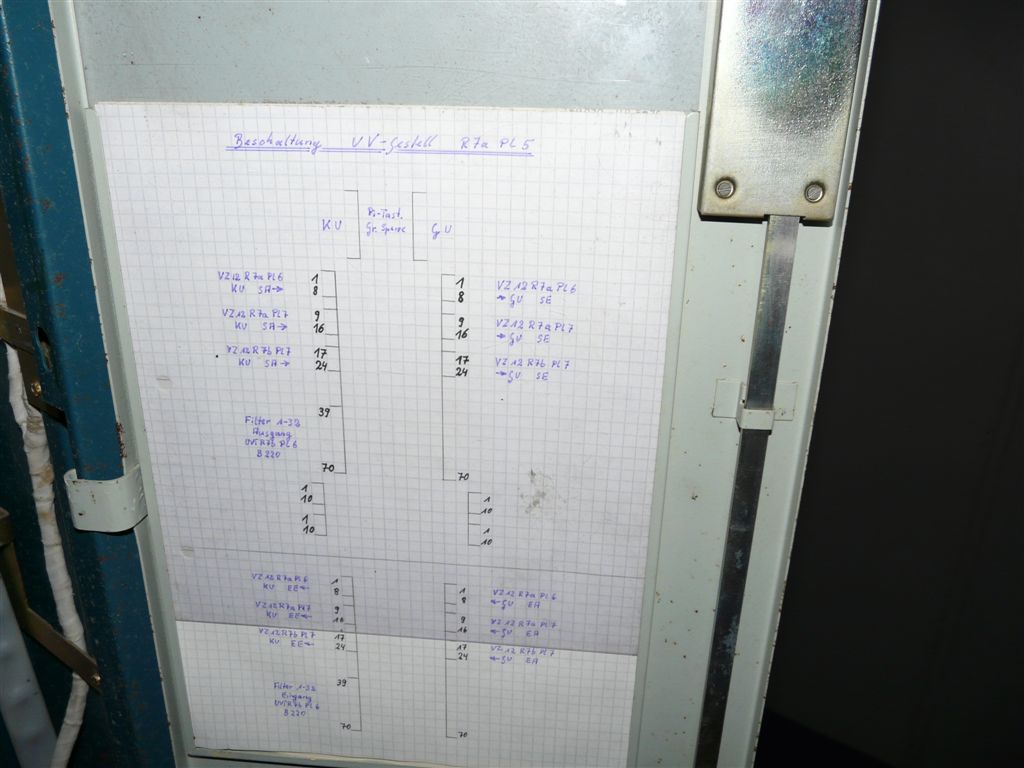 Beschaltung VV-Gestell R7a PL5
KU
Gr. Sperre
GU
VZ12 R7a PL6
1
KU SA→
8
VZ12 R7a PL7
9
KU SA→
16
VZ12 R7b PL7
17
KU SA→
24
39
Filter 1-32
Ausgang
R7b PL6
B220
70
1
10
1
10
1
VZ12 R7a PL6
8
→GU SE
9
VZ12 R7a PL7
16
→GU SE
17
VZ12 R7b PL7
24
→GU SE
70
1
10
1
10
VZ12 R7a PL6
1
KU EE←
8
VZ12 R7a PL7
9
KU EE←
16
VZ12 R7b PL7
17
KU EE←
24
39
Filter 1-32
Eingang
R7b PL6
B220
70
1
VZ12 R7a PL6
8
←GU EA
9
VZ12 R7a PL7
16
←GU EA
17
VZ12 R7b PL7
24
←GU EA
70